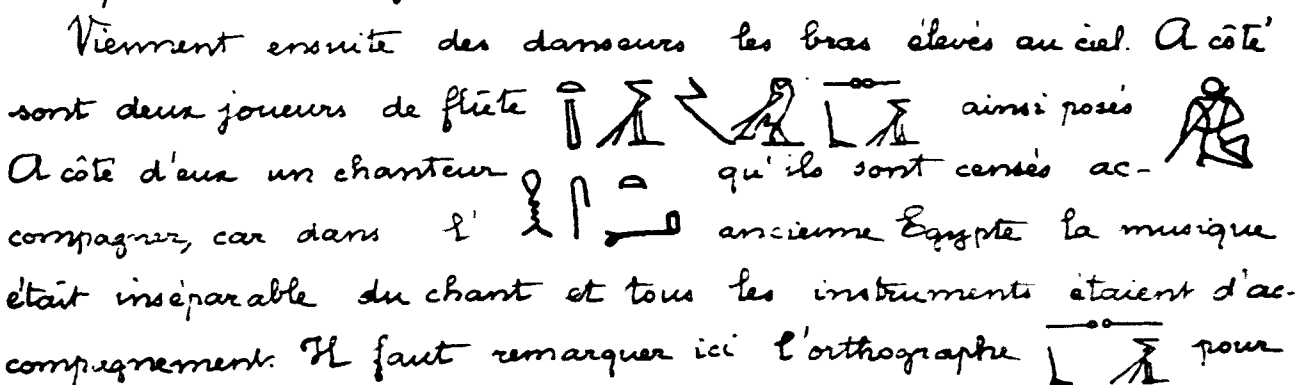 Viennent ensuite des danseurs les bras élevés au ciel. A côté
sont deux joueurs de flûte ainsi posés
A côté d'eux un chanteur qu'ils sont censés ac-
compagner, car dans l' ancienne Egypte la musique
était inséparable du chant et tous les instruments étaient d'ac-
compagnement. Il faut remarquer ici l'orthographe pour